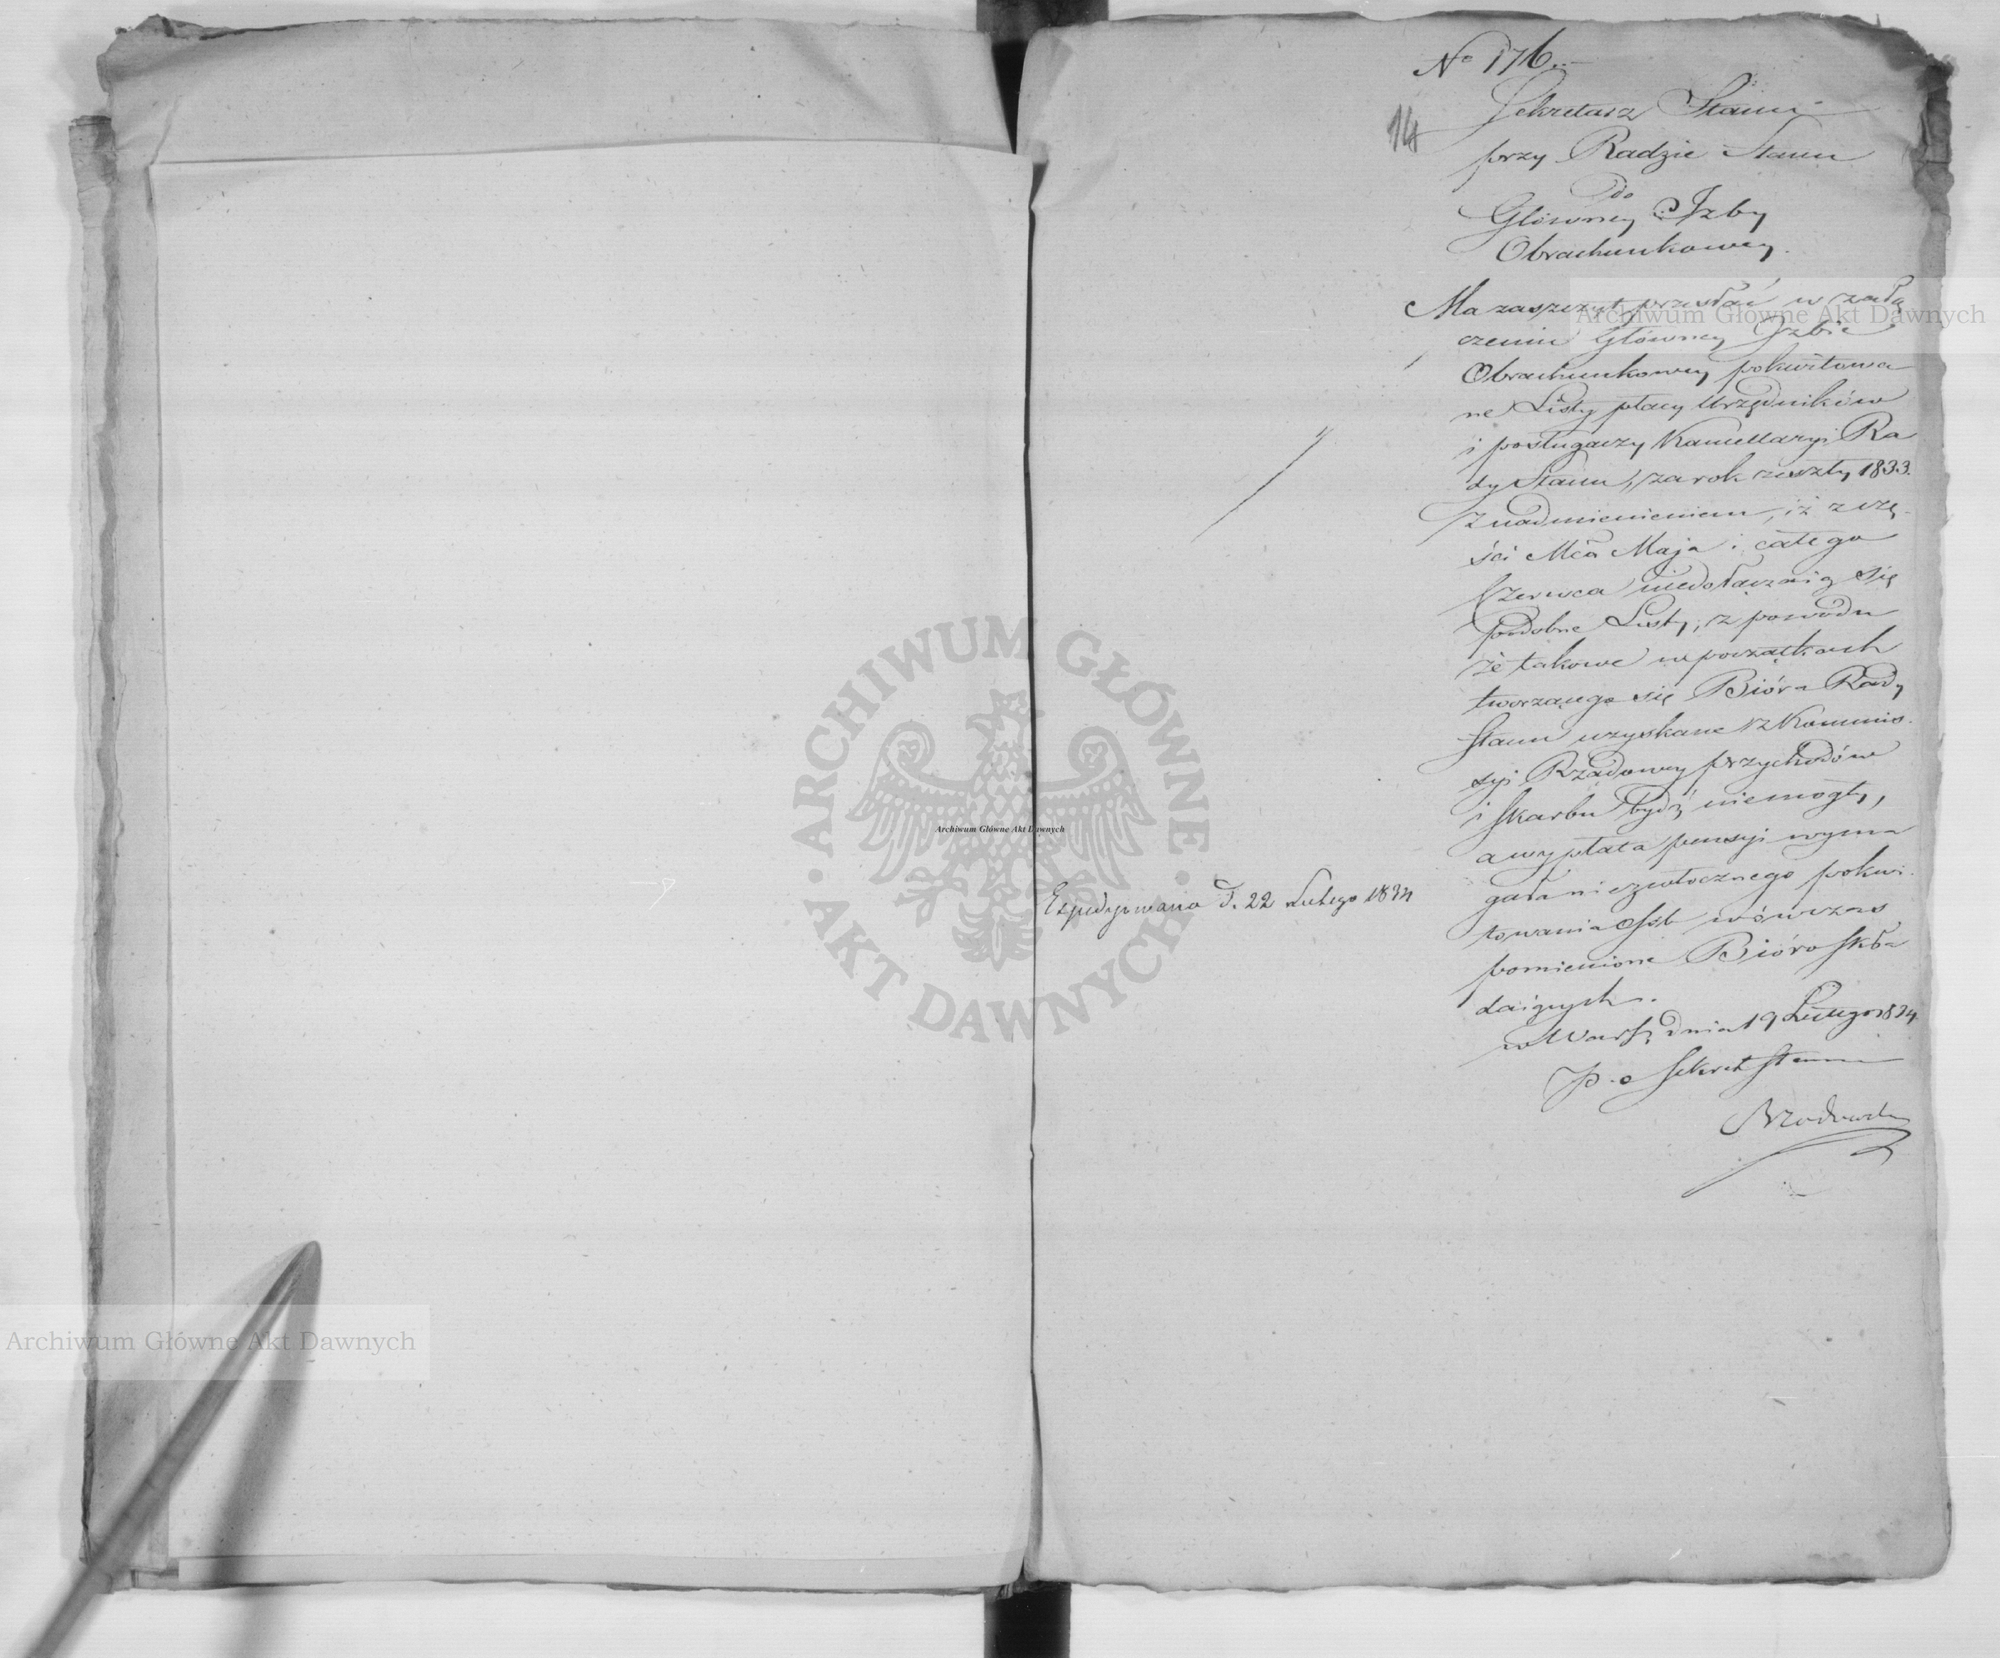 No 176.
14
Sekretarz Stanu
przy Radzie Stanu
do
Główney Izby
Obrachunkowey.
Ma zaszczyt przesłać w załą
czeniu Główney Izbie
Obrachunkowey pokwitowa
ne Listy płacy Urzędników
i posługaczy Kancellaryi Ra
dy Stanu, za rok zeszły 1833.
Z nadmienieniem, iż z czę
ści Mca Maja i całego
Czerwca niedołączaią się
podobne Listy, z powodu
że takowe w początkach
tworzącego się Bióra Rady
Stanu uzyskane z Kommis
syi Rządowey przychodów
i Skarbu bydź niemogły,
a wypłata pensyi wyma
gała niezwłocznego pokwi
towania Osób wówczas
pomienione Bióro skła
daiących.
w Warsz. dnia 19 Lutego 1834
P. o Sekret Stanu
Expedyowano d. 22 Lutego 1834
Archiwum Główne Akt Dawnych
Archiwum Główne Akt Dawnych
Archiwum Główne Akt Dawnych
ARCHIWUM GŁÓWNE AKT DAWNYCH